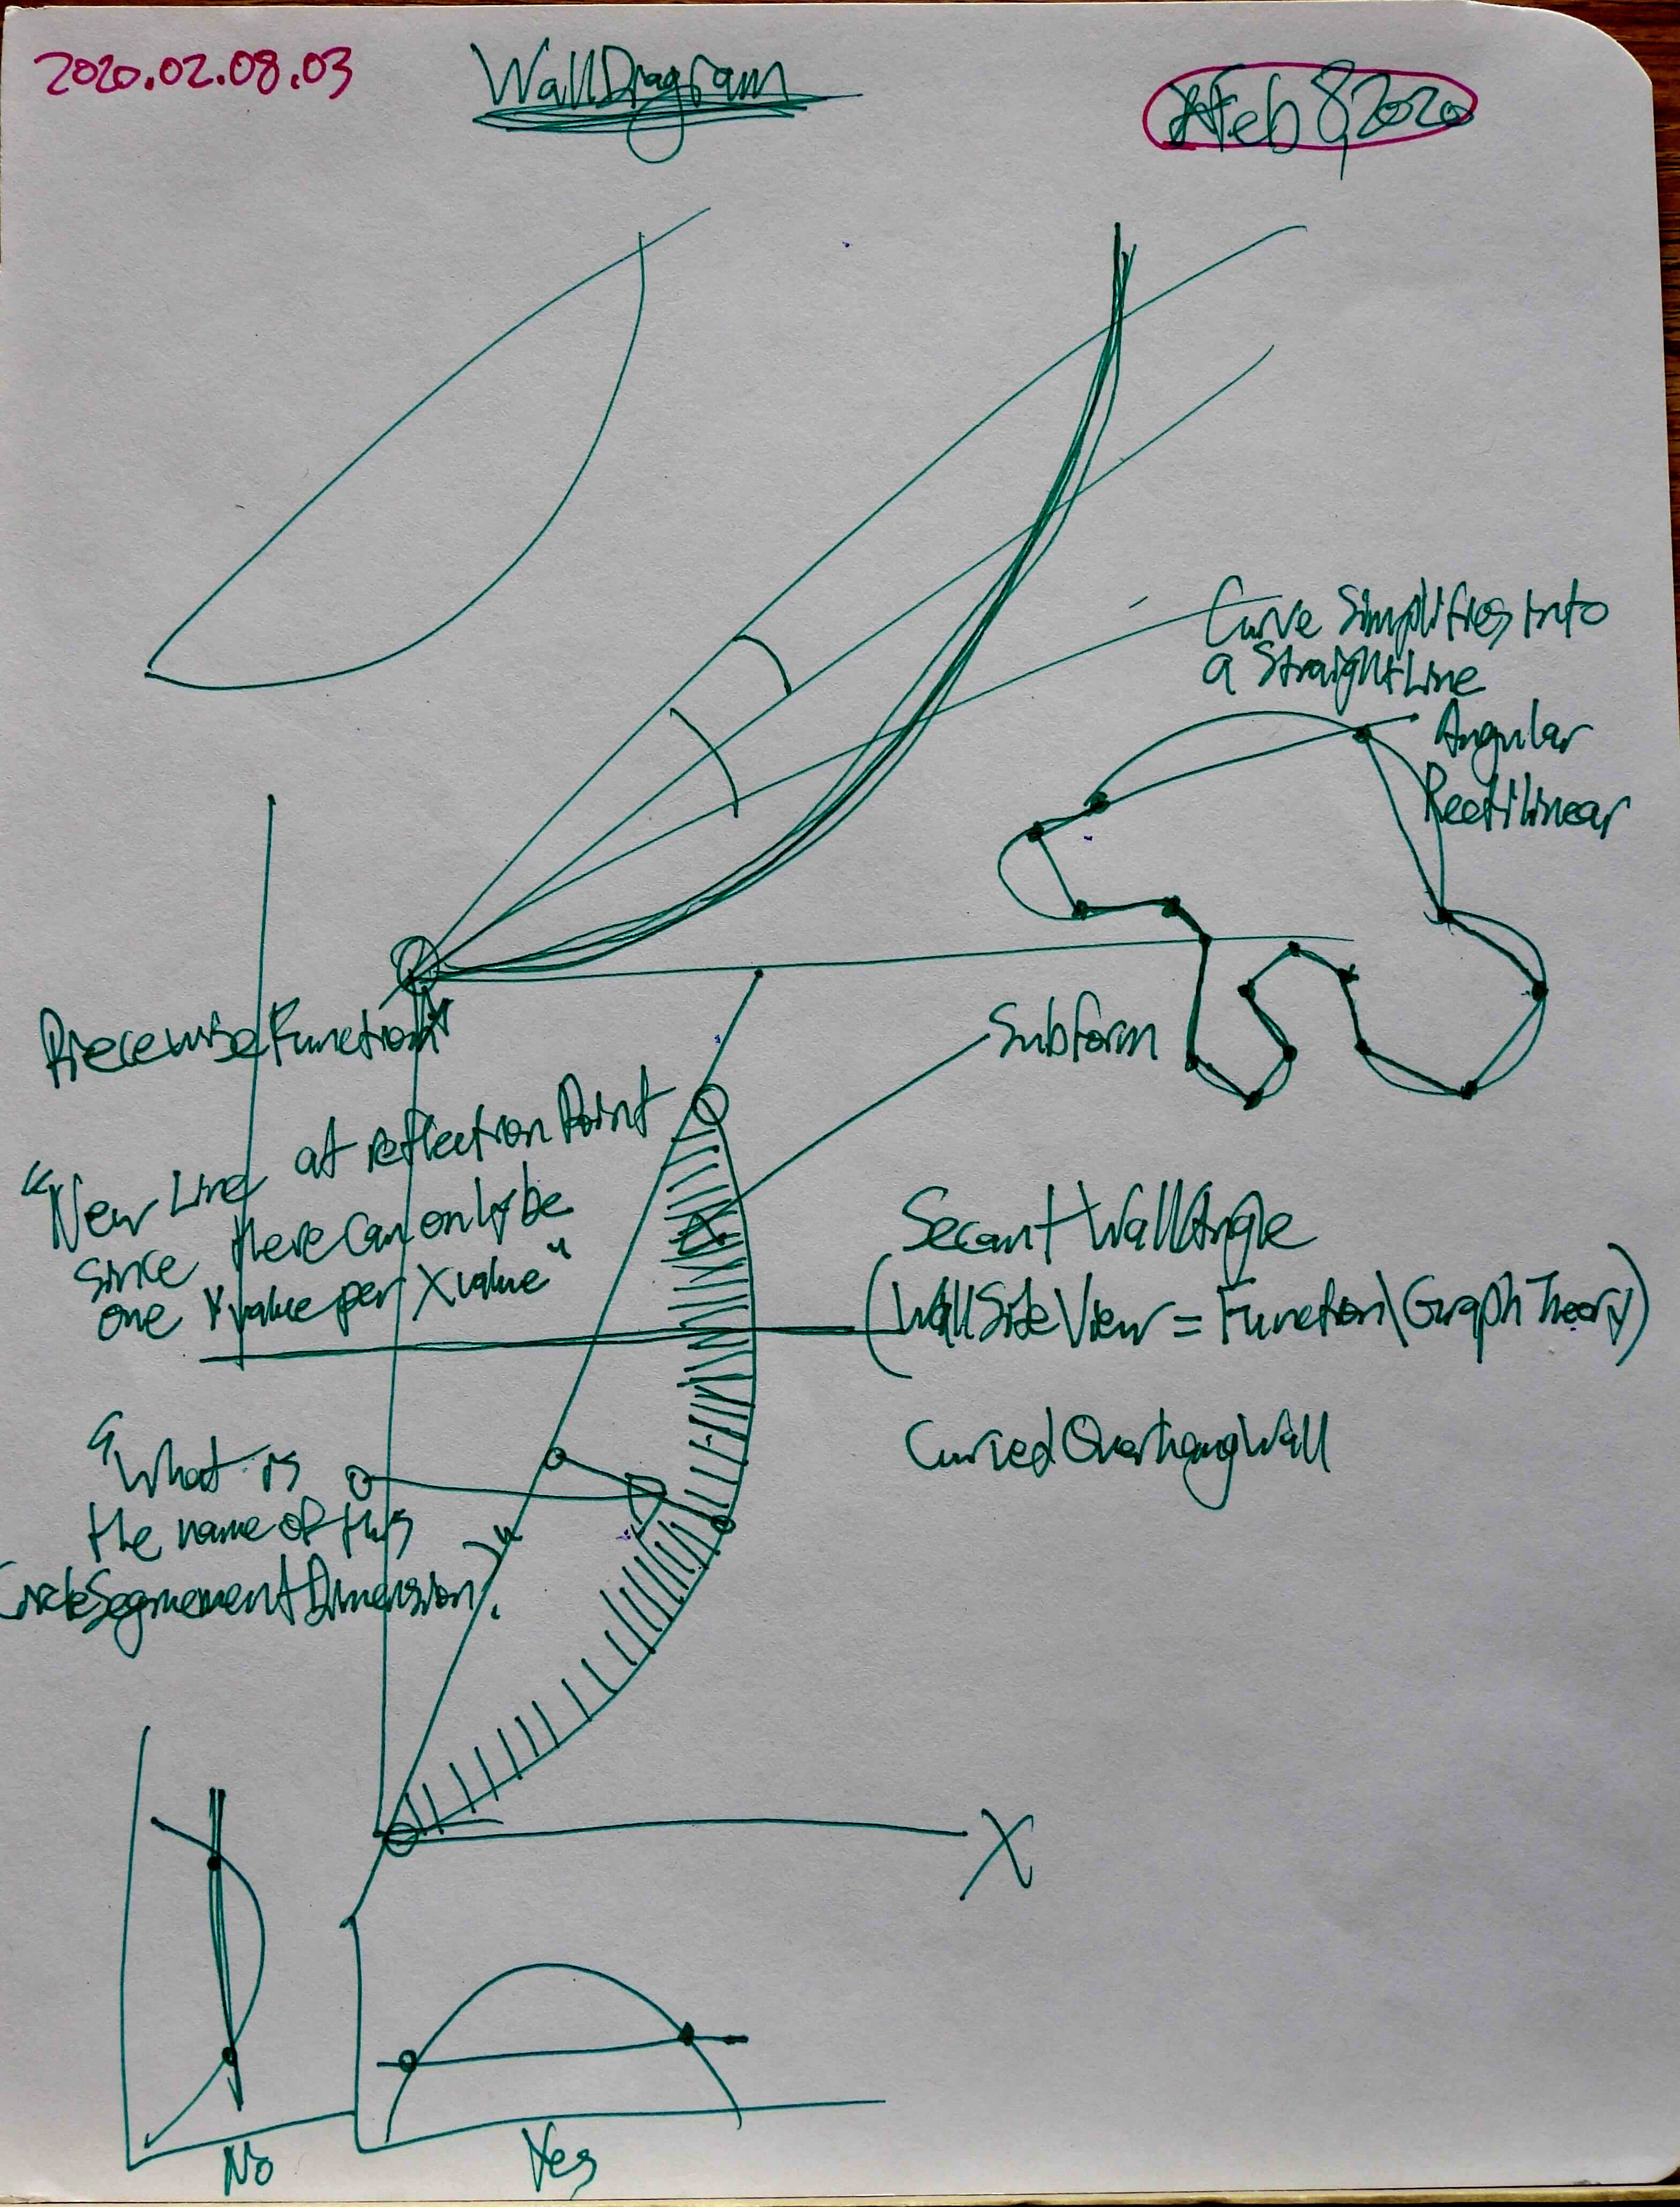 2020.02.08.03
WallDiagram
Feb 8, 2020
Curve Simplifies Into
a Straight Line
Angular
Rectilinear
Piecewise Function
Subform
"New Line at reflection Point
since there can only be
one Y value per X value"
Secant Wall Angle
(Wall Side View = Function\Graph Theory)
Curved Overhang Wall
"What is
the name of this
Circle Segmement Dimension?
X
No
Yes